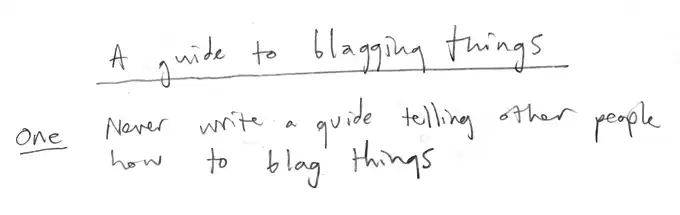 A guide to blagging things
One Never write a guide telling other people
how to blag things